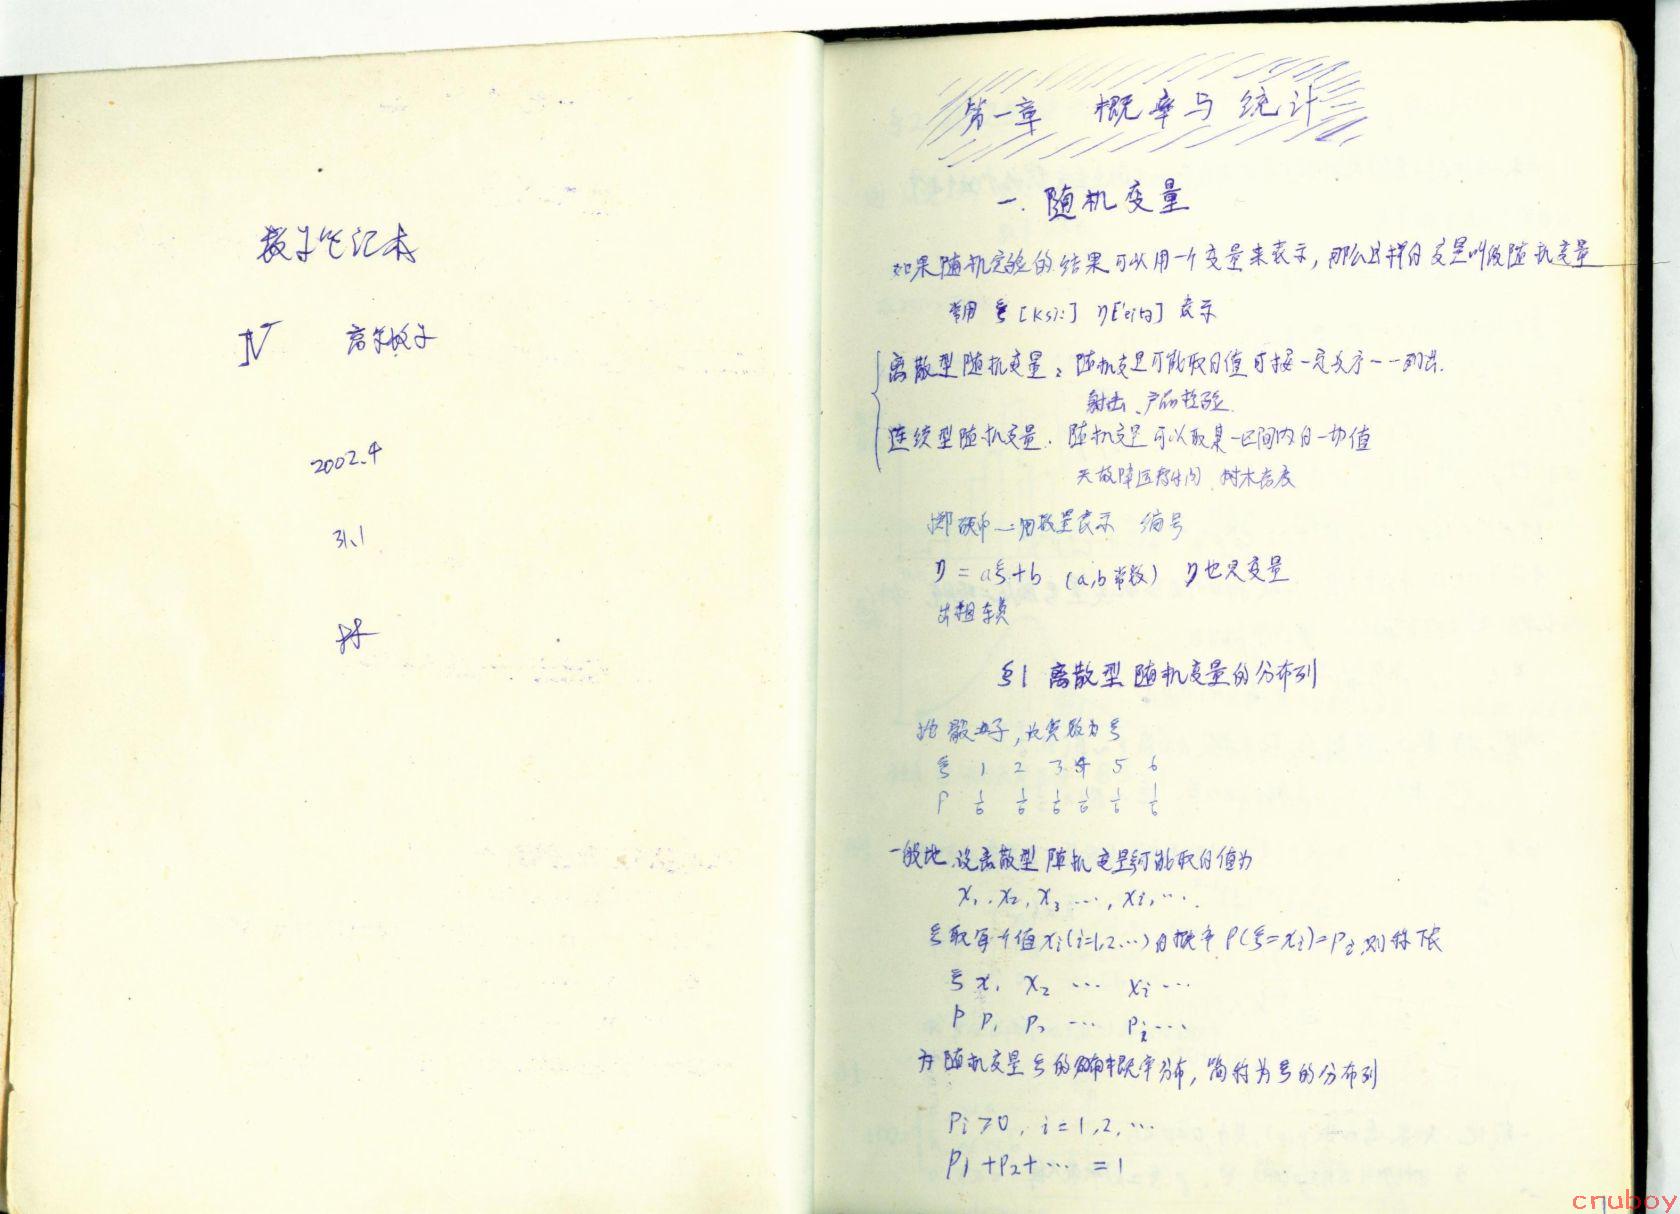 数学笔记本
IV 高等数学
2002.4
31.1
第一章 概率与统计
一. 随机变量
如果随机实验的结果可以用一个变量来表示，那么这样的变量叫做随机变量
常用 ξ [ksi:] η ['eitə] 表示
离散型随机变量：随机变量可能取的值可按一定次序一一列出.
射击、产品检验.
连续型随机变量. 随机变量可以取某一区间内的一切值
无故障运转时间 树木高度
掷硬币—用数量表示 编号
η = aξ+b (a,b常数) η也是变量
出租车费
§1 离散型随机变量的分布列
抛骰子，设点数为ξ
ξ 1 2 3 4 5 6
P 1/6 1/6 1/6 1/6 1/6 1/6
一般地 设离散型随机变量ξ可能取的值为
x₁, x₂, x₃ …, xi, ….
ξ取每个值xi(i=1,2…)的概率P(ξ=xi)=Pi,则称下表
ξ x₁ x₂ … xi …
P P₁ P₂ … Pi …
为随机变量ξ的概率分布，简称为ξ的分布列
Pi≥0, i=1,2,…
P1+P2+… =1
cnuboy